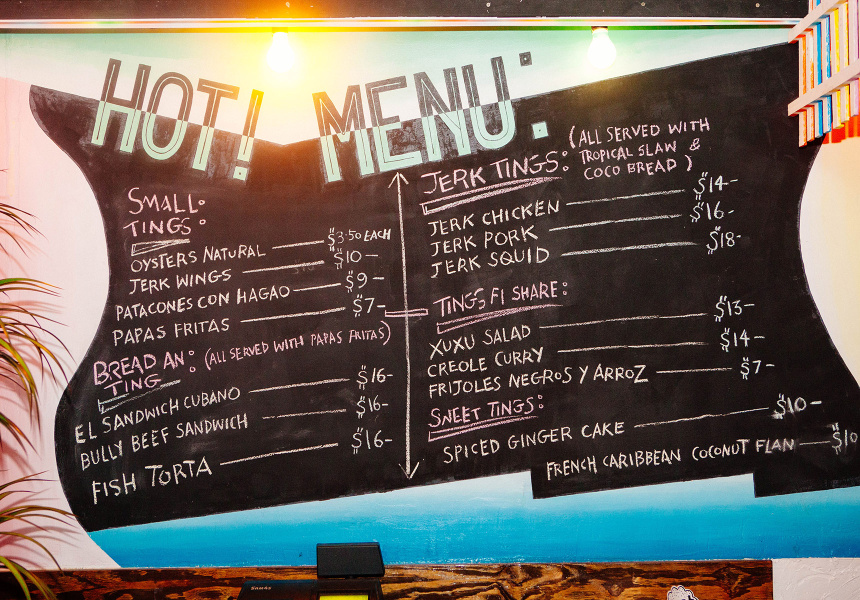 HOT! MENU:
SMALL:
TINGS:
OYSTERS NATURAL $3.50 EACH
JERK WINGS $10-
PATACONES CON HAGAO $9-
PAPAS FRITAS $7-
BREAD AN: (ALL SERVED WITH PAPAS FRITAS)
TING
EL SANDWICH CUBANO $16-
BULLY BEEF SANDWICH $16-
FISH TORTA $16-
JERK TINGS: (ALL SERVED WITH
TROPICAL SLAW &
COCO BREAD)
JERK CHICKEN $14-
JERK PORK $16-
JERK SQUID $18-
TINGS FI SHARE:
XUXU SALAD $13-
CREOLE CURRY $14-
FRIJOLES NEGROS Y ARROZ $7-
SWEET TINGS:
SPICED GINGER CAKE $10-
FRENCH CARIBBEAN COCONUT FLAN $10